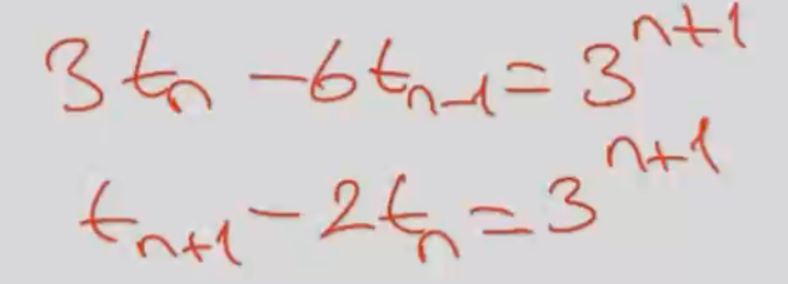 3tₙ - 6tₙ₋₁ = 3ⁿ⁺¹
tₙ₊₁ - 2tₙ = 3ⁿ⁺¹